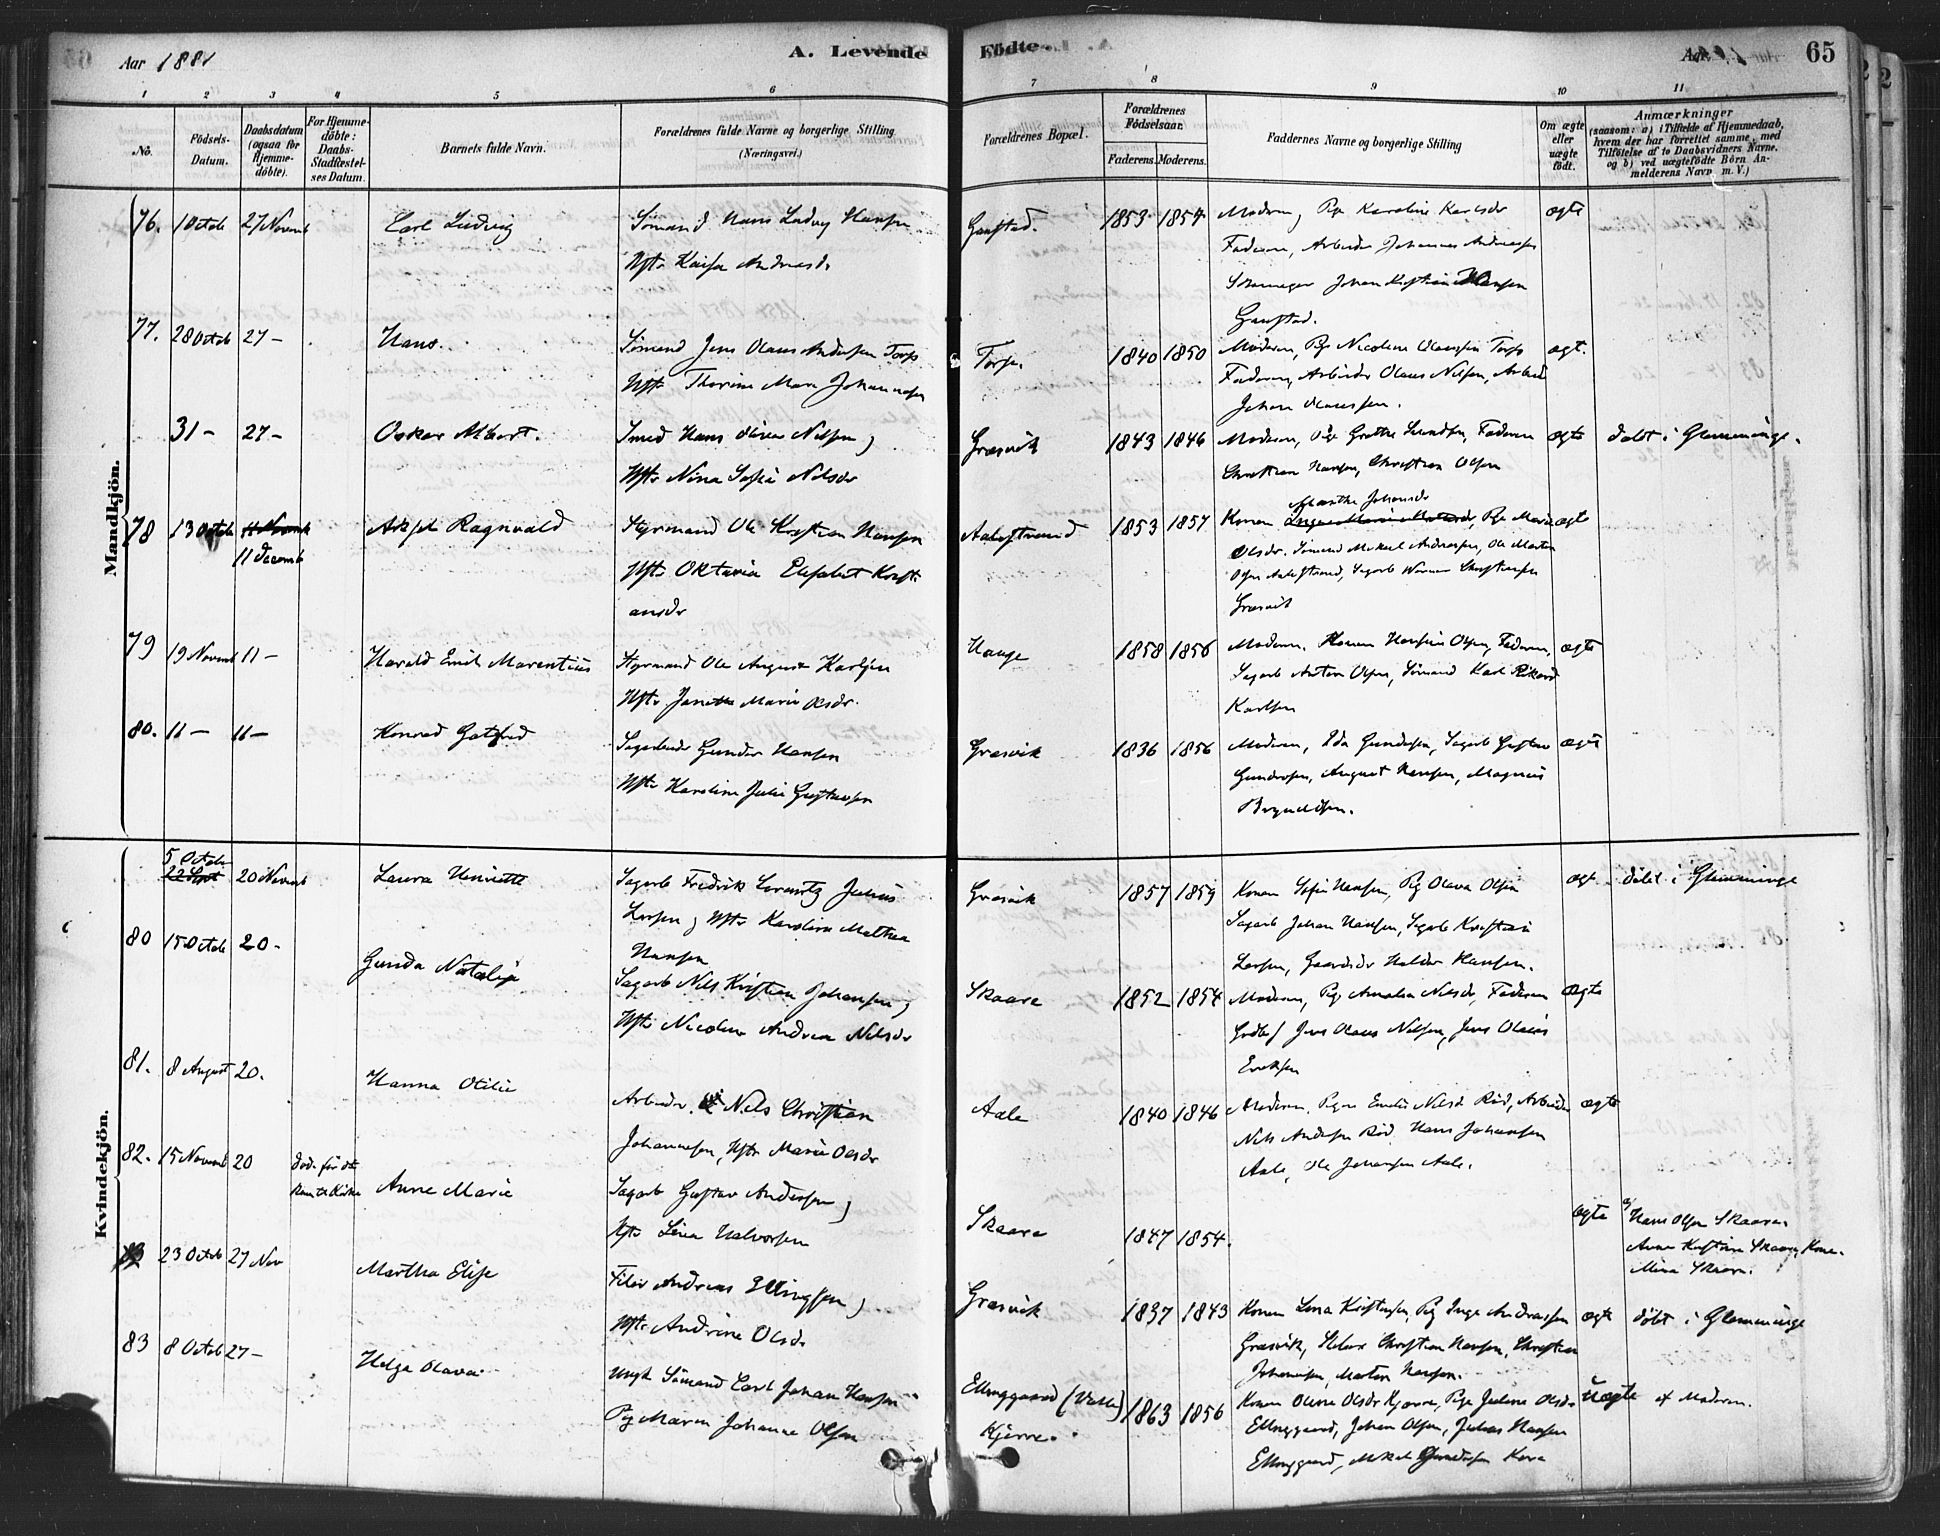 Aar 1881
A. Levende
Fødte.
Aar
65
1 2 3 4 5 6 7 8 9 10 11
No.
Födsels-
Datum.
Daabsdatum
(ogsaa för
Hjemme-
döbte).
For Hjemme-
döbte:
Daabs-
Stadfæstel-
ses Datum.
Barnets fulde Navn.
Forældrenes fulde Navne og borgerlige Stilling
(Næringsvei.)
Forældrenes Bopæl.
Forældrenes
Födselsaar.
Faderens. Moderens.
Faddernes Navne og borgerlige Stilling
Om ægte
eller
uægte
födt.
Anmærkninger
(saasom: a) i Tilfælde af Hjemmedaab,
hvem der har forrettet samme, med
Tilföielse af to Daabsvidners Navne.
og b) ved uægtefödte Börn An-
melderens Navn m. V.)
Mandkjön.
76. 1 Octob 27 Novemb Carl Ludvig Sömand Hans Ludvig Hansen
Hstr Kaisa Andreasdr
Gaustad. 1853 1854 Moderen, Pige Karoline Karlsdr ægte
Faderen, Arbeider Johannes Andreassen
Skomager Johan Kristian Hansen
Gaustad.
77. 28 Octob 27 – Hans. Sömand Jens Olaus Andersen Torp
Hstr Thorine Mare Johannesen
Torp. 1840 1850 Moderen, Pige Nicoline Olaussen Torp ægt.
Faderen, Arbeider Olaus Nilsen, Arbeid
Johan Olaussen.
31 – 27 – Oskar Albert. Smed Hans Oliver Nilsen,
Hstr Nina Sofie Nilsdr
Græsvik 1843 1846 Moderen, Pige Grethe Lundsen, Faderen ægte döbt i Glemminge.
Christian Hansen, Christian Olsen
78 13 Octob 11 Novemb
11 Decemb
Aksel Ragnvald Styrmand Ole Kristian Hansen
Hstr Oktavia Elisabet Krist-
iansdr
Aalestrand 1853 1857 Marthe Johansdr
Konen Pige Maria ægte
Olsdr. Sömand Mikael Andreassen, Ole Martin
Olsen Aalestrand, Sagarb Werner Christensen
Græsvik
79 19 Novemb 11 – Harald Emil Marentius Styrmand Ole August Karlsen
Hstr Janette Marie Olsdr.
Hauge 1858 1856 Moderen, Konen Hansine Olsen, Faderen, ægte
Sagarb Anton Olsen, Sömand Karl Rikard
Karlsen
80. 11 – 11 – Konrad Gotfred Sagarbeider Gunder Hansen
Hstr Karoline Julie Gustavsen
Græsvik 1836 1856 Moderen, Ida Gundersen, Sagarb Gustav ægte
Gundersen, August Hansen, Magnus
Kvindekjön.
5 Octob
22 Sept 20 Novemb Laura Henriette Sagarb Fredrik Lorentz Julius
Larsen, Hstr Karoline Mathea
Hansen
Græsvik 1857 1859 Konen Sofie Hansen, Pig Olava Olsen ægt. döbt i Glemminge
Sagarb Johan Hansen, Sagarb Kristian
Larsen, Gaardsdr Halder Hansen.
80 15 Octob 20 – Gunda Natalie Sagarb Nils Kristian Johansen,
Hstr Nicoline Andrea Nilsdr
Skaare 1852 1854 Moderen, Pige Amalia Nilsdr, Faderen ægte
Jens Olaus Nilsen, Jens Olaus
Eriksen
81. 8 August 20. Hanna Otilie Arbeider Nils Christian
Johannesen, Hstr Marie Olsdr
Aale 1840 1846 Moderen, Pigen Emilie Nilsdr Röd, Arbeider ægte
Nils Andersen Röd, Hans Johansen
Aale, Ole Johansen Aale.
82. 15 Novemb 20 död för det
kom til Kirke
Anne Marie Sagarb Gustav Andersen,
Hstr Lina Halvorsen
Skaare 1847 1854. ægte a) Hans Olsen Skaare
Anne Kristine Skaare, Kone
Mina Skaare.
83 23 Octob 27 Nov Martha Elise Andreas Ellingsen,
Hstr Andrine Olsdr
Græsvik 1837 1843 Konen Lena Kristensen, Pig Inge Andreassen ægte döbt i Glemminge
Græsvik, Christian Hansen, Christian
Johannesen, Martin Hansen.
83 8 Octob 27 – Helga Olava Ungk Sömand Carl Johan Hansen
Pig Maren Johanne Olsen
Elinggaard (Valle)
Kjærre.
1863 1856 Konen Oline Olsdr Kjærre, Pige Juline Olsdr Uægte af Moderen.
Elinggaard, Johan Olsen, Julius Hansen
Elinggaard, Mikal Gundersen